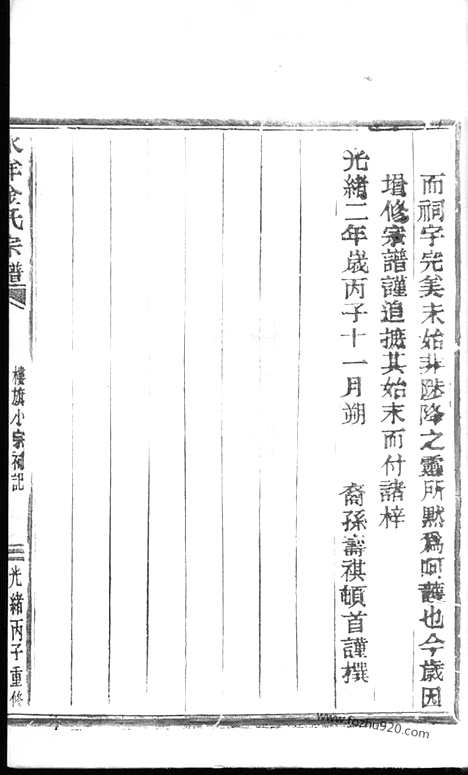 而祠宇完美未始非陟降之靈所默爲呵護也今歲因
增修宗譜謹追摭其始末而付諸梓
光緒二年歲丙子十一月朔 裔孫壽祺頓首謹撰
金氏宗譜
樓旗小宗祠記
二
光緒丙子重修
www.fozhu920.com